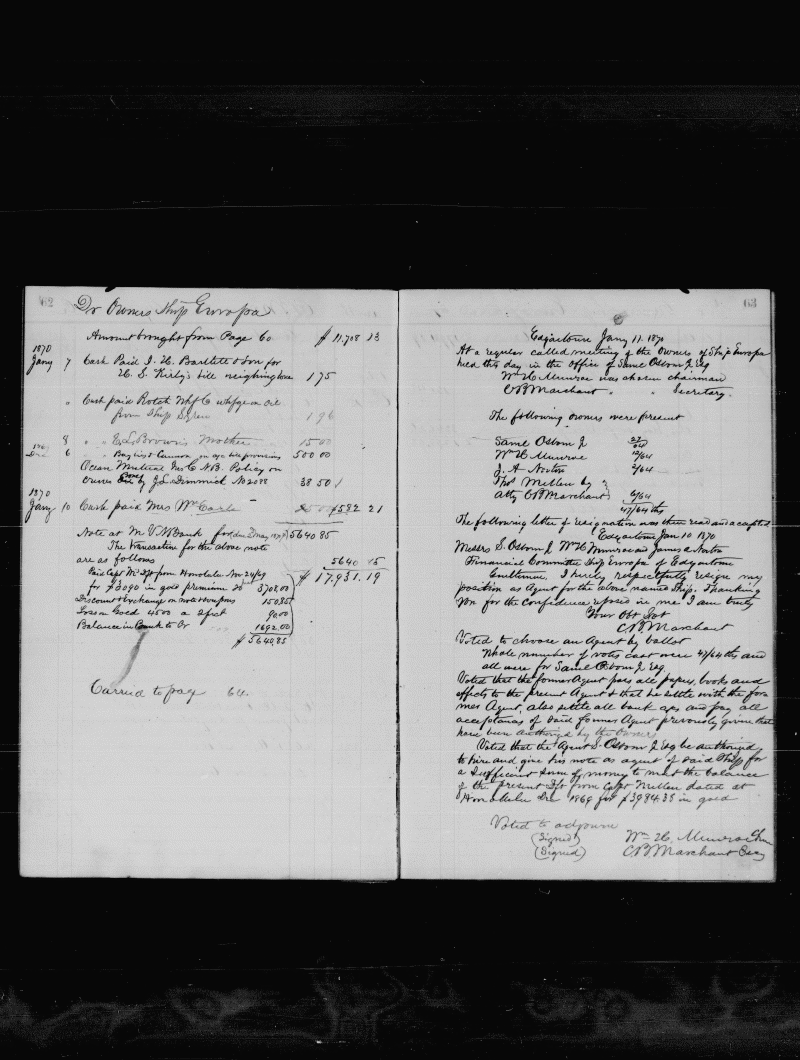 62
Dr Owners Ship Europa
Amount brought from Page 60 $ 11,708 13
1870
Jany 7 Cash Paid I. H. Bartlett & Son for
H. S. Kirby's bill weighing bone 1 75
" Cash paid Rotch Whf Co whfge on Oil
from Ship 1 96
8 " " E. L. Brown's Mother 15 00
1869
Dec 6 " " & Cannon on a/c bill provisions 500 00
Ocean Mutual Ins Co N.B. Policy on
Owners Bone Oil by J. S. Dimmick No 2088 38 50
1870
Jany 10 Cash paid Mrs Wm Earle 582 21
Note at M. V. N Bank for 5640 85
The transactions for the above note
are as follows 5640 85
Paid Capt Ms Dft from Honolulu Nov 24/69 $ 17,931.19
for $3090 in gold premium 20 3708,00
Discount & Exchange on note & coupons 150,85
Loss on Gold 4500 a 2 pct 90,00
Balance in Bank to Cr 1692.00
$ 5640,85
Carried to page 64.
63
Edgartown Jany 11. 1870
At a regular called meeting of the Owners of Ship Europa
held this day in the Office of Saml Osborn Jr Esq
Wm H Munroe was chosen chairman
C B Marchant " " Secretary.
The following owners were present
Saml Osborn Jr 27/64
Wm H Munroe 12/64
J. A. Norton 2/64
Thos Mellen by
Atty C B Marchant 6/64
47/64 ths
The following letter of resignation was then read and accepted
Edgartown Jan 10 1870
Messrs S. Osborn Jr Wm H Munroe and James A Norton
Financial Committee Ship Europa of Edgartown
Gentlemen, I hereby respectfully resign my
position as Agent for the above named Ship. Thanking
you for the confidence reposed in me I am truly
Your Obt Svt
C B Marchant
Voted to choose an Agent by ballot
Whole number of votes cast were 47/64 ths and
all were for Saml Osborn Jr Esq
Voted that the former Agent pass all papers, books and
effects to the present Agent & that he settle with the for
mer Agent, also settle all bank a/cs and pay all
acceptances of said former Agent previously given that
have been authorized by the owners
Voted that the Agent S. Osborn Jr Esq be authorized
to hire and give his note as agent of said Ship for
a sufficient sum of money to meet the balance
of the present Dft from Capt Mellen dated at
Honolulu Dec 1869 for $3984.38 in gold
Voted to adjourn
(Signed) Wm H. Munroe Chn
(Signed) C B Marchant Secy